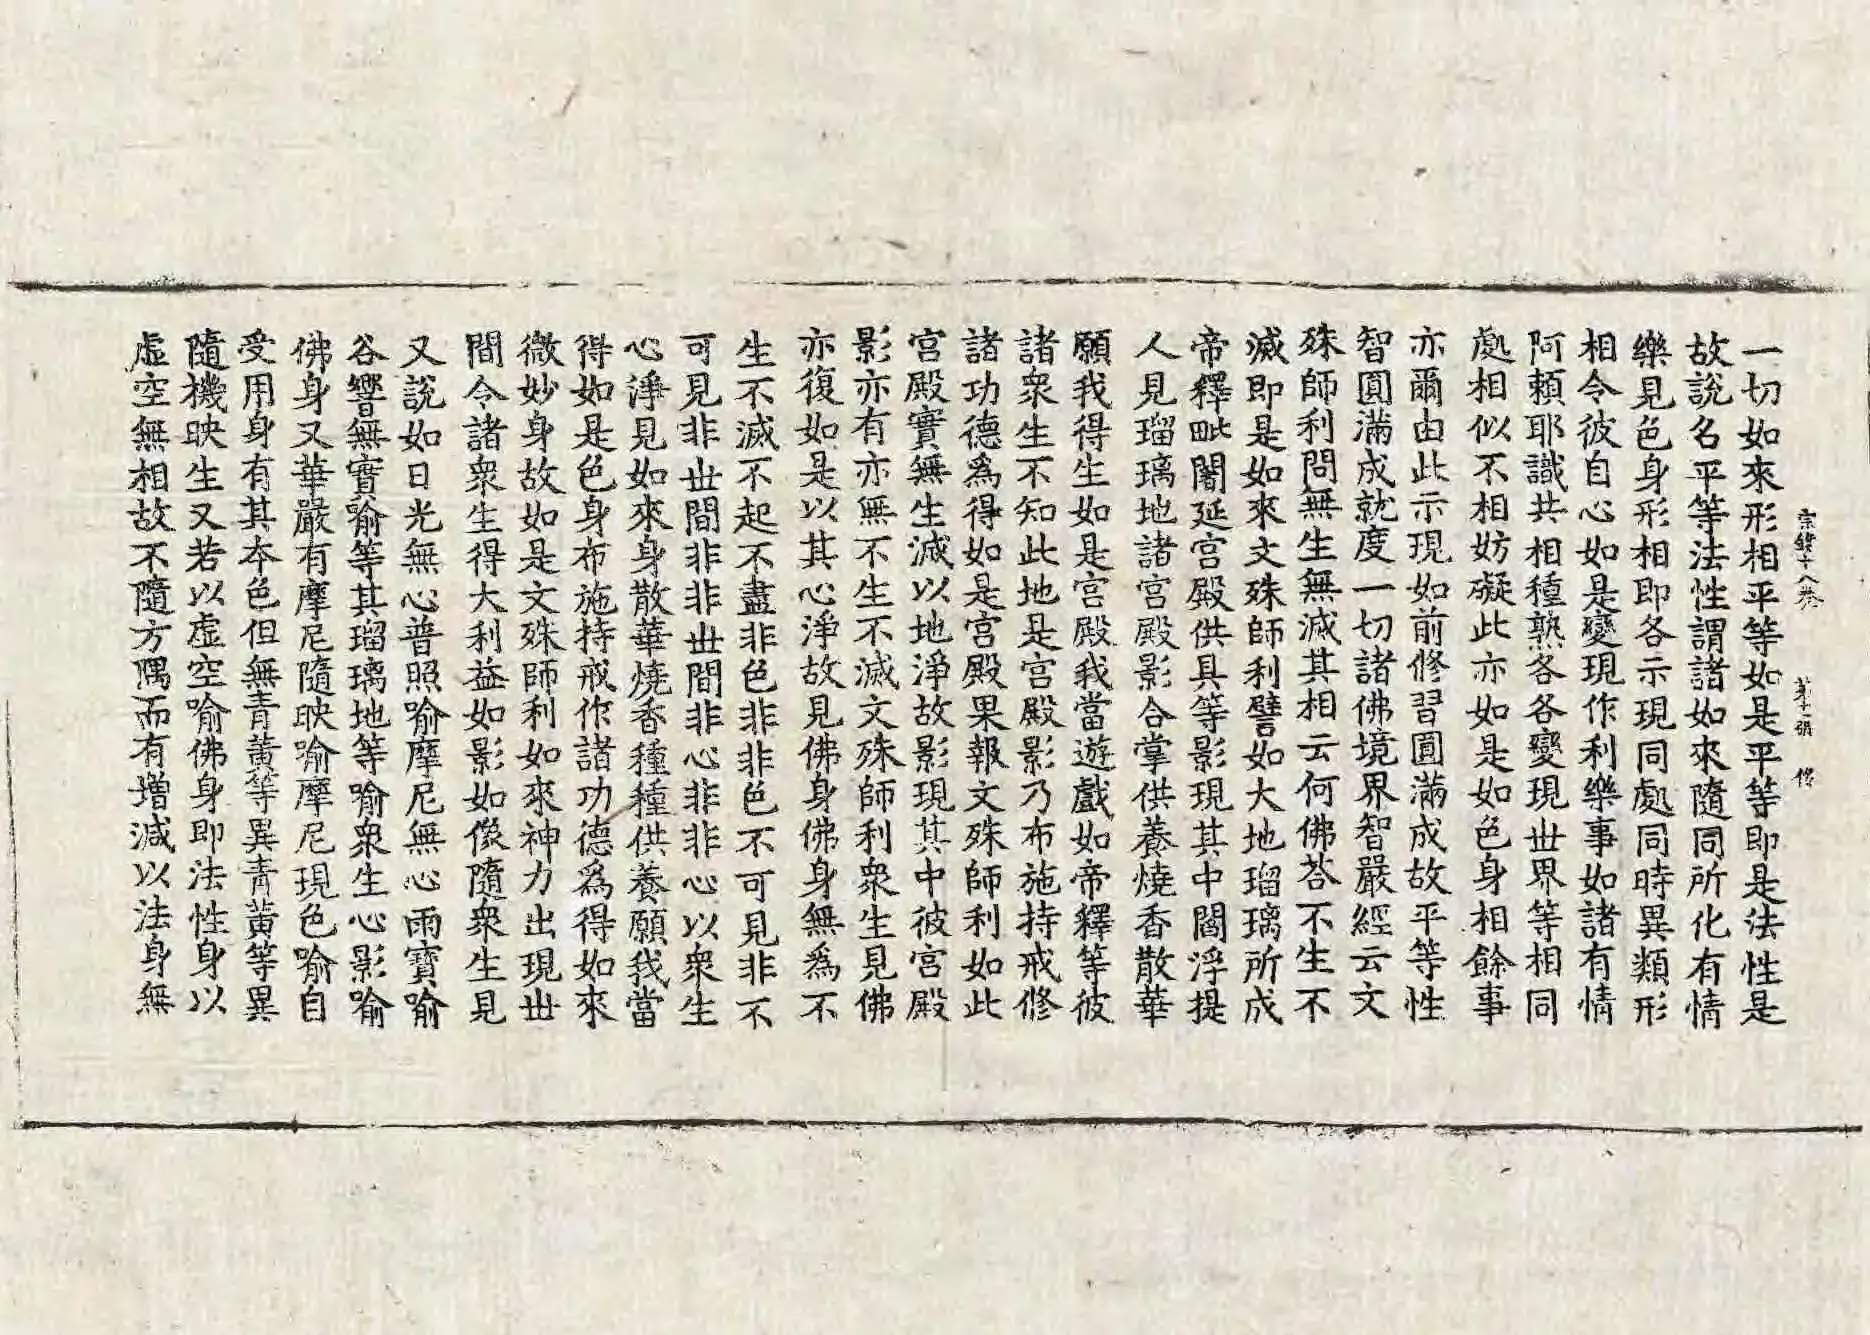 宗鏡十八卷 第十一張 修
一切如來形相平等如是平等即是法性是
故說名平等法性謂諸如來隨同所化有情
樂見色身形相即各示現同處同時異類形
相令彼自心如是變現作利樂事如諸有情
阿賴耶識共相種熟各各變現世界等相同
處相似不相妨礙此亦如是如色身相餘事
亦爾由此示現如前修習圓滿成故平等性
智圓滿成就度一切諸佛境界智嚴經云文
殊師利問無生無滅其相云何佛荅不生不
滅即是如來文殊師利譬如大地瑠璃所成
帝釋毗闍延宮殿供具等影現其中閻浮提
人見瑠璃地諸宮殿影合掌供養燒香散華
願我得生如是宮殿我當遊戲如帝釋等彼
諸衆生不知此地是宮殿影乃布施持戒修
諸功德爲得如是宮殿果報文殊師利如此
宮殿實無生滅以地淨故影現其中彼宮殿
影亦有亦無不生不滅文殊師利衆生見佛
亦復如是以其心淨故見佛身佛身無爲不
生不滅不起不盡非色非非色不可見非不
可見非世間非非世間非心非非心以衆生
心淨見如來身散華燒香種種供養願我當
得如是色身布施持戒作諸功德爲得如來
微妙身故如是文殊師利如來神力出現世
間令諸衆生得大利益如影如像隨衆生見
又說如日光無心普照喻摩尼無心雨寶喻
谷響無實喻等其瑠璃地等喻衆生心影喻
佛身又華嚴有摩尼隨映喻摩尼現色喻自
受用身有其本色但無青黃等異青黃等異
隨機映生又若以虛空喻佛身即法性身以
虛空無相故不隨方隅而有增減以法身無